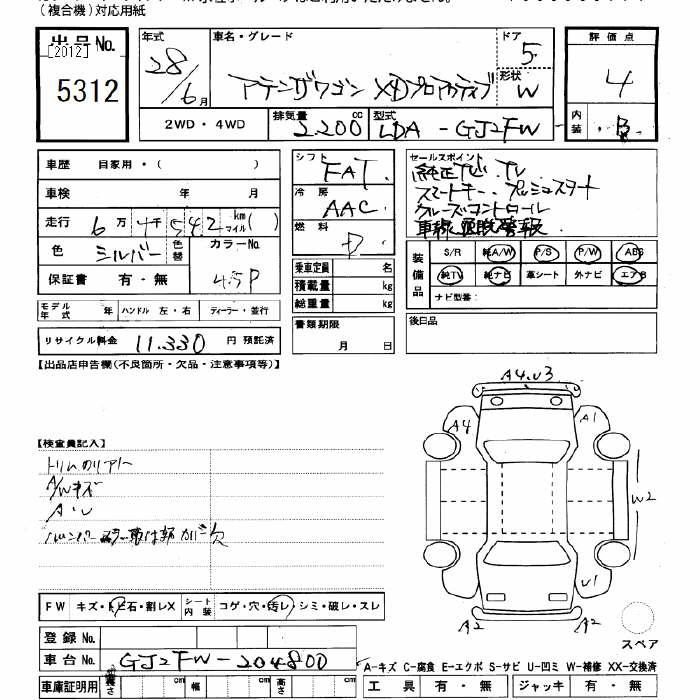 (複合機)対応用紙
出品No.
[2012]
5312
年式
28/6月
車名・グレード
アテンザワゴン XDプロアクティブ
ドア
5
形状
W
評価点
4
内装
B
2WD・4WD
排気量 2,200cc
型式 LDA-GJ2FW
車歴 自家用・( )
車検 年 月
走行 6万4千542km マイル( )
色 シルバー 色替
カラーNo. 45P
保証書 有・無
モデル年式 年 ハンドル 左・右 ディーラー・並行
リサイクル料金 11,330円預託済
シフト FAT
冷房 AAC
燃料 D
乗車定員 名
積載量 kg
総重量 kg
書類期限
月 日
セールスポイント
純正ナビ.TV
スマートキー.プッシュスタート
クルーズコントロール
車線逸脱警報
装備品
S/R 純A/W P/S P/W ABS
純TV 純ナビ 革シート 外ナビ エアB
ナビ型番:
後日品
【出品店申告欄(不良箇所・欠品・注意事項等)】
【検査員記入】
A/Wキズ
A・U
FW キズ・トビ石・割レX シート内装 コゲ・穴・汚レ・シミ・破レ・スレ
登録No.
車台No. GJ2FW-204800
車庫証明用 長さ cm 幅 cm 高さ cm
A4.U3
A4
A1
W2
U1
A2
A2
スペア
A-キズ C-腐食 E-エクボ S-サビ U-凹ミ W-補修 XX-交換済
工具 有・無 ジャッキ 有・無